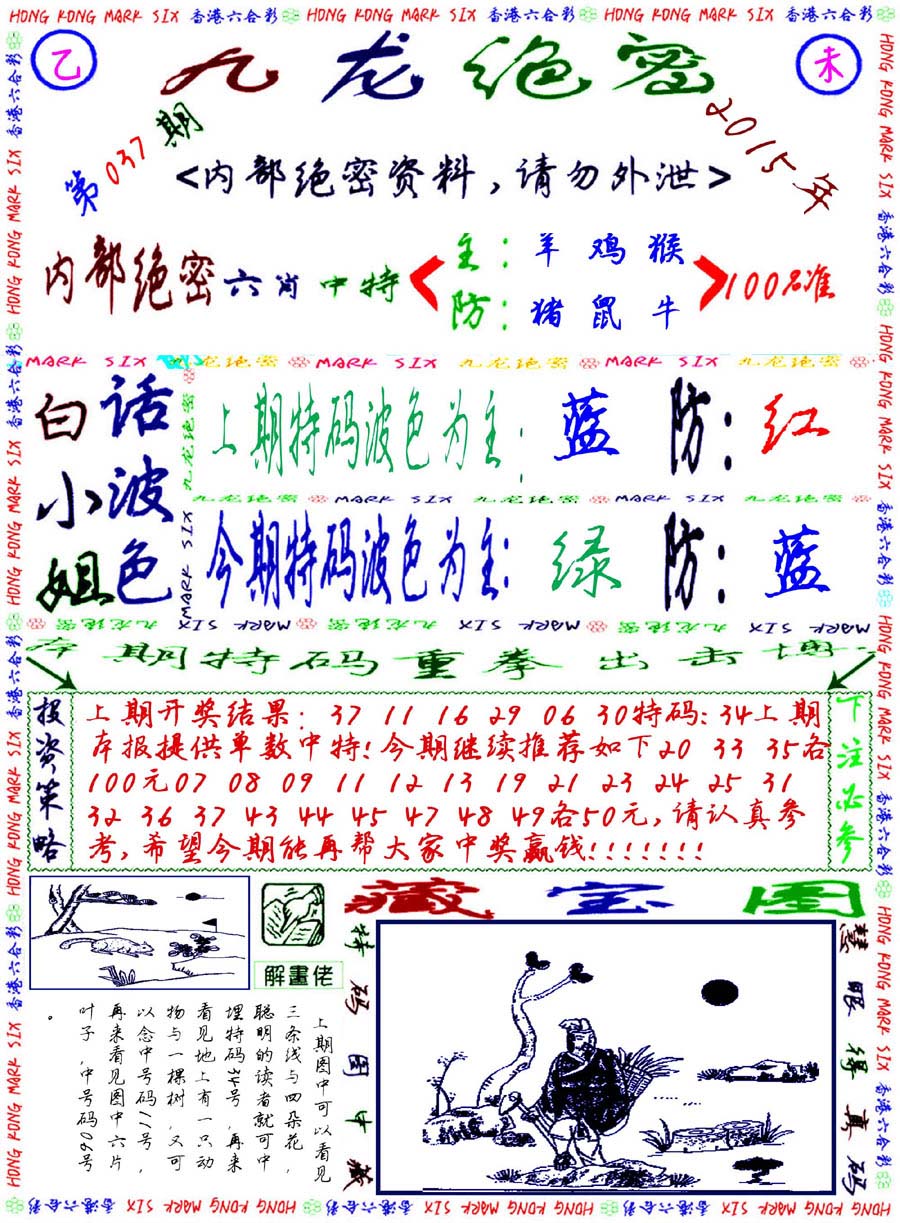 HONG KONG MARK SIX 香港六合彩 HONG KONG MARK SIX 香港六合彩 HONG KONG MARK SIX 香港六合彩
乙 九龙绝密 未
第037期 2015年
<内部绝密资料，请勿外泄>
内部绝密六肖中特
主：羊鸡猴
防：猪鼠牛
100%准
MARK SIX 九龙绝密 MARK SIX 九龙绝密 MARK SIX 九龙绝密
白小姐
话波色
上期特码波色为主：蓝 防：红
九龙绝密 MARK SIX 九龙绝密 MARK SIX 九龙绝密
今期特码波色为主：绿 防：蓝
九龙绝密 MARK SIX 九龙绝密 MARK SIX 九龙绝密 MARK SIX
本期特码重拳出击博
投资策略
上期开奖结果：37 11 16 29 06 30特码：34上期
本报提供单数中特！今期继续推荐如下20 33 35各
100元07 08 09 11 12 13 19 21 23 24 25 31
32 36 37 43 44 45 47 48 49各50元，请认真参
考，希望今期能再帮大家中奖赢钱！！！！！！！
下注必参
解畫佬
藏宝图
上期图中可以看见
三条线与四朵花，
聪明的读者就可中
埋特码34号，再来
看见地上有一只动
物与一棵树，又可
以念中号码11号，
再来看见图中六片
叶子，中号码06号
。
特码图中藏
慧眼得真码
HONG KONG MARK SIX 香港六合彩 HONG KONG MARK SIX 香港六合彩 HONG KONG MARK SIX 香港六合彩